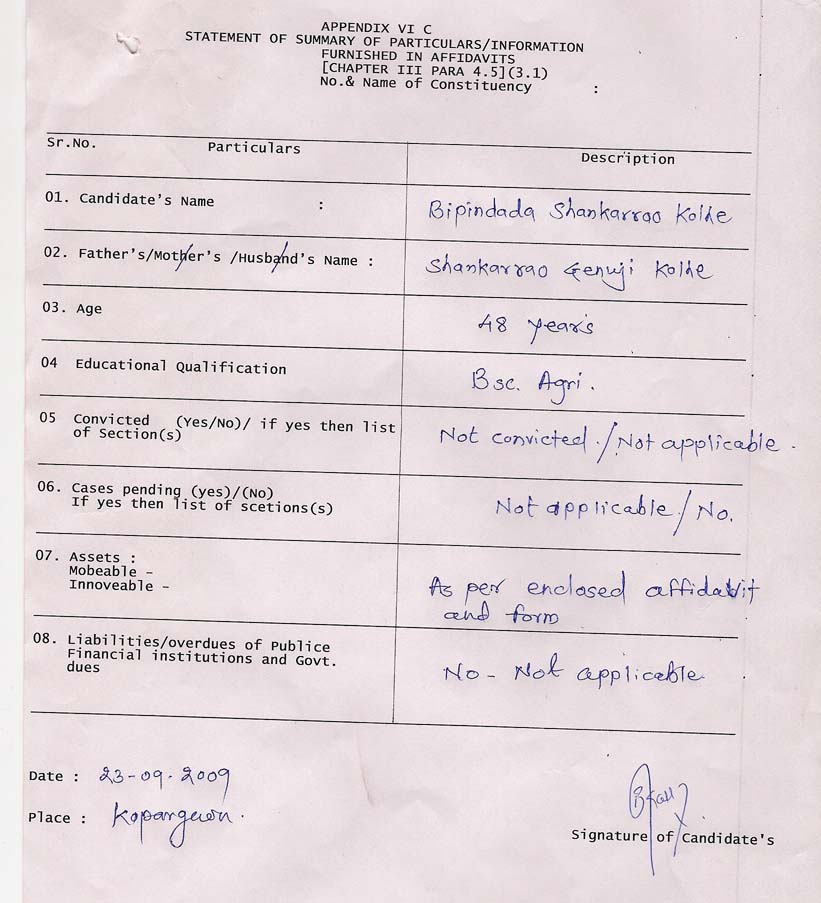 APPENDIX VI C
STATEMENT OF SUMMARY OF PARTICULARS/INFORMATION
FURNISHED IN AFFIDAVITS
[CHAPTER III PARA 4.5](3.1)
No.& Name of Constituency :
Sr.No. Particulars Description
01. Candidate's Name : Bipindada Shankarrao Kolhe
02. Father's/Mother's /Husband's Name : Shankarrao Genuji Kolhe
03. Age 48 years
04 Educational Qualification Bsc. Agri.
05 Convicted (Yes/No)/ if yes then list
of Section(s) Not convicted./Not applicable.
06. Cases pending (yes)/(No)
If yes then list of scetions(s) Not applicable/No.
07. Assets :
Mobeable -
Innoveable - As per enclosed affidavit
and form
08. Liabilities/overdues of Publice
Financial institutions and Govt.
dues No - Not applicable.
Date : 23-09-2009
Place : Kopargaon.
Signature of Candidate's